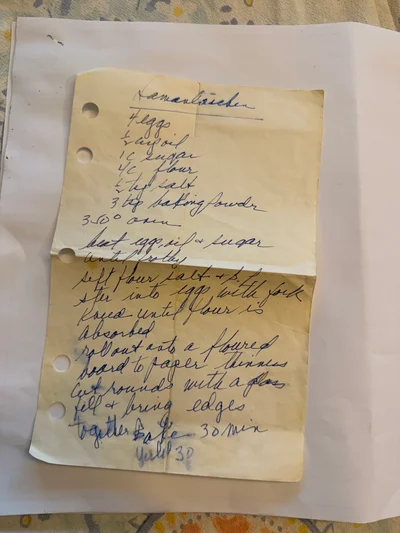 Hamantaschen
4 eggs
½ c oil
1 c sugar
4 c flour
½ tsp salt
3 tsp baking powder
350° oven
beat eggs, oil & sugar
until frothy
sift flour salt &
stir into eggs with fork
Knead until flour is
absorbed
roll out onto a floured
board to paper thinness
Cut rounds with a glass
fill & bring edges
together Bake 30 min
Yield 30